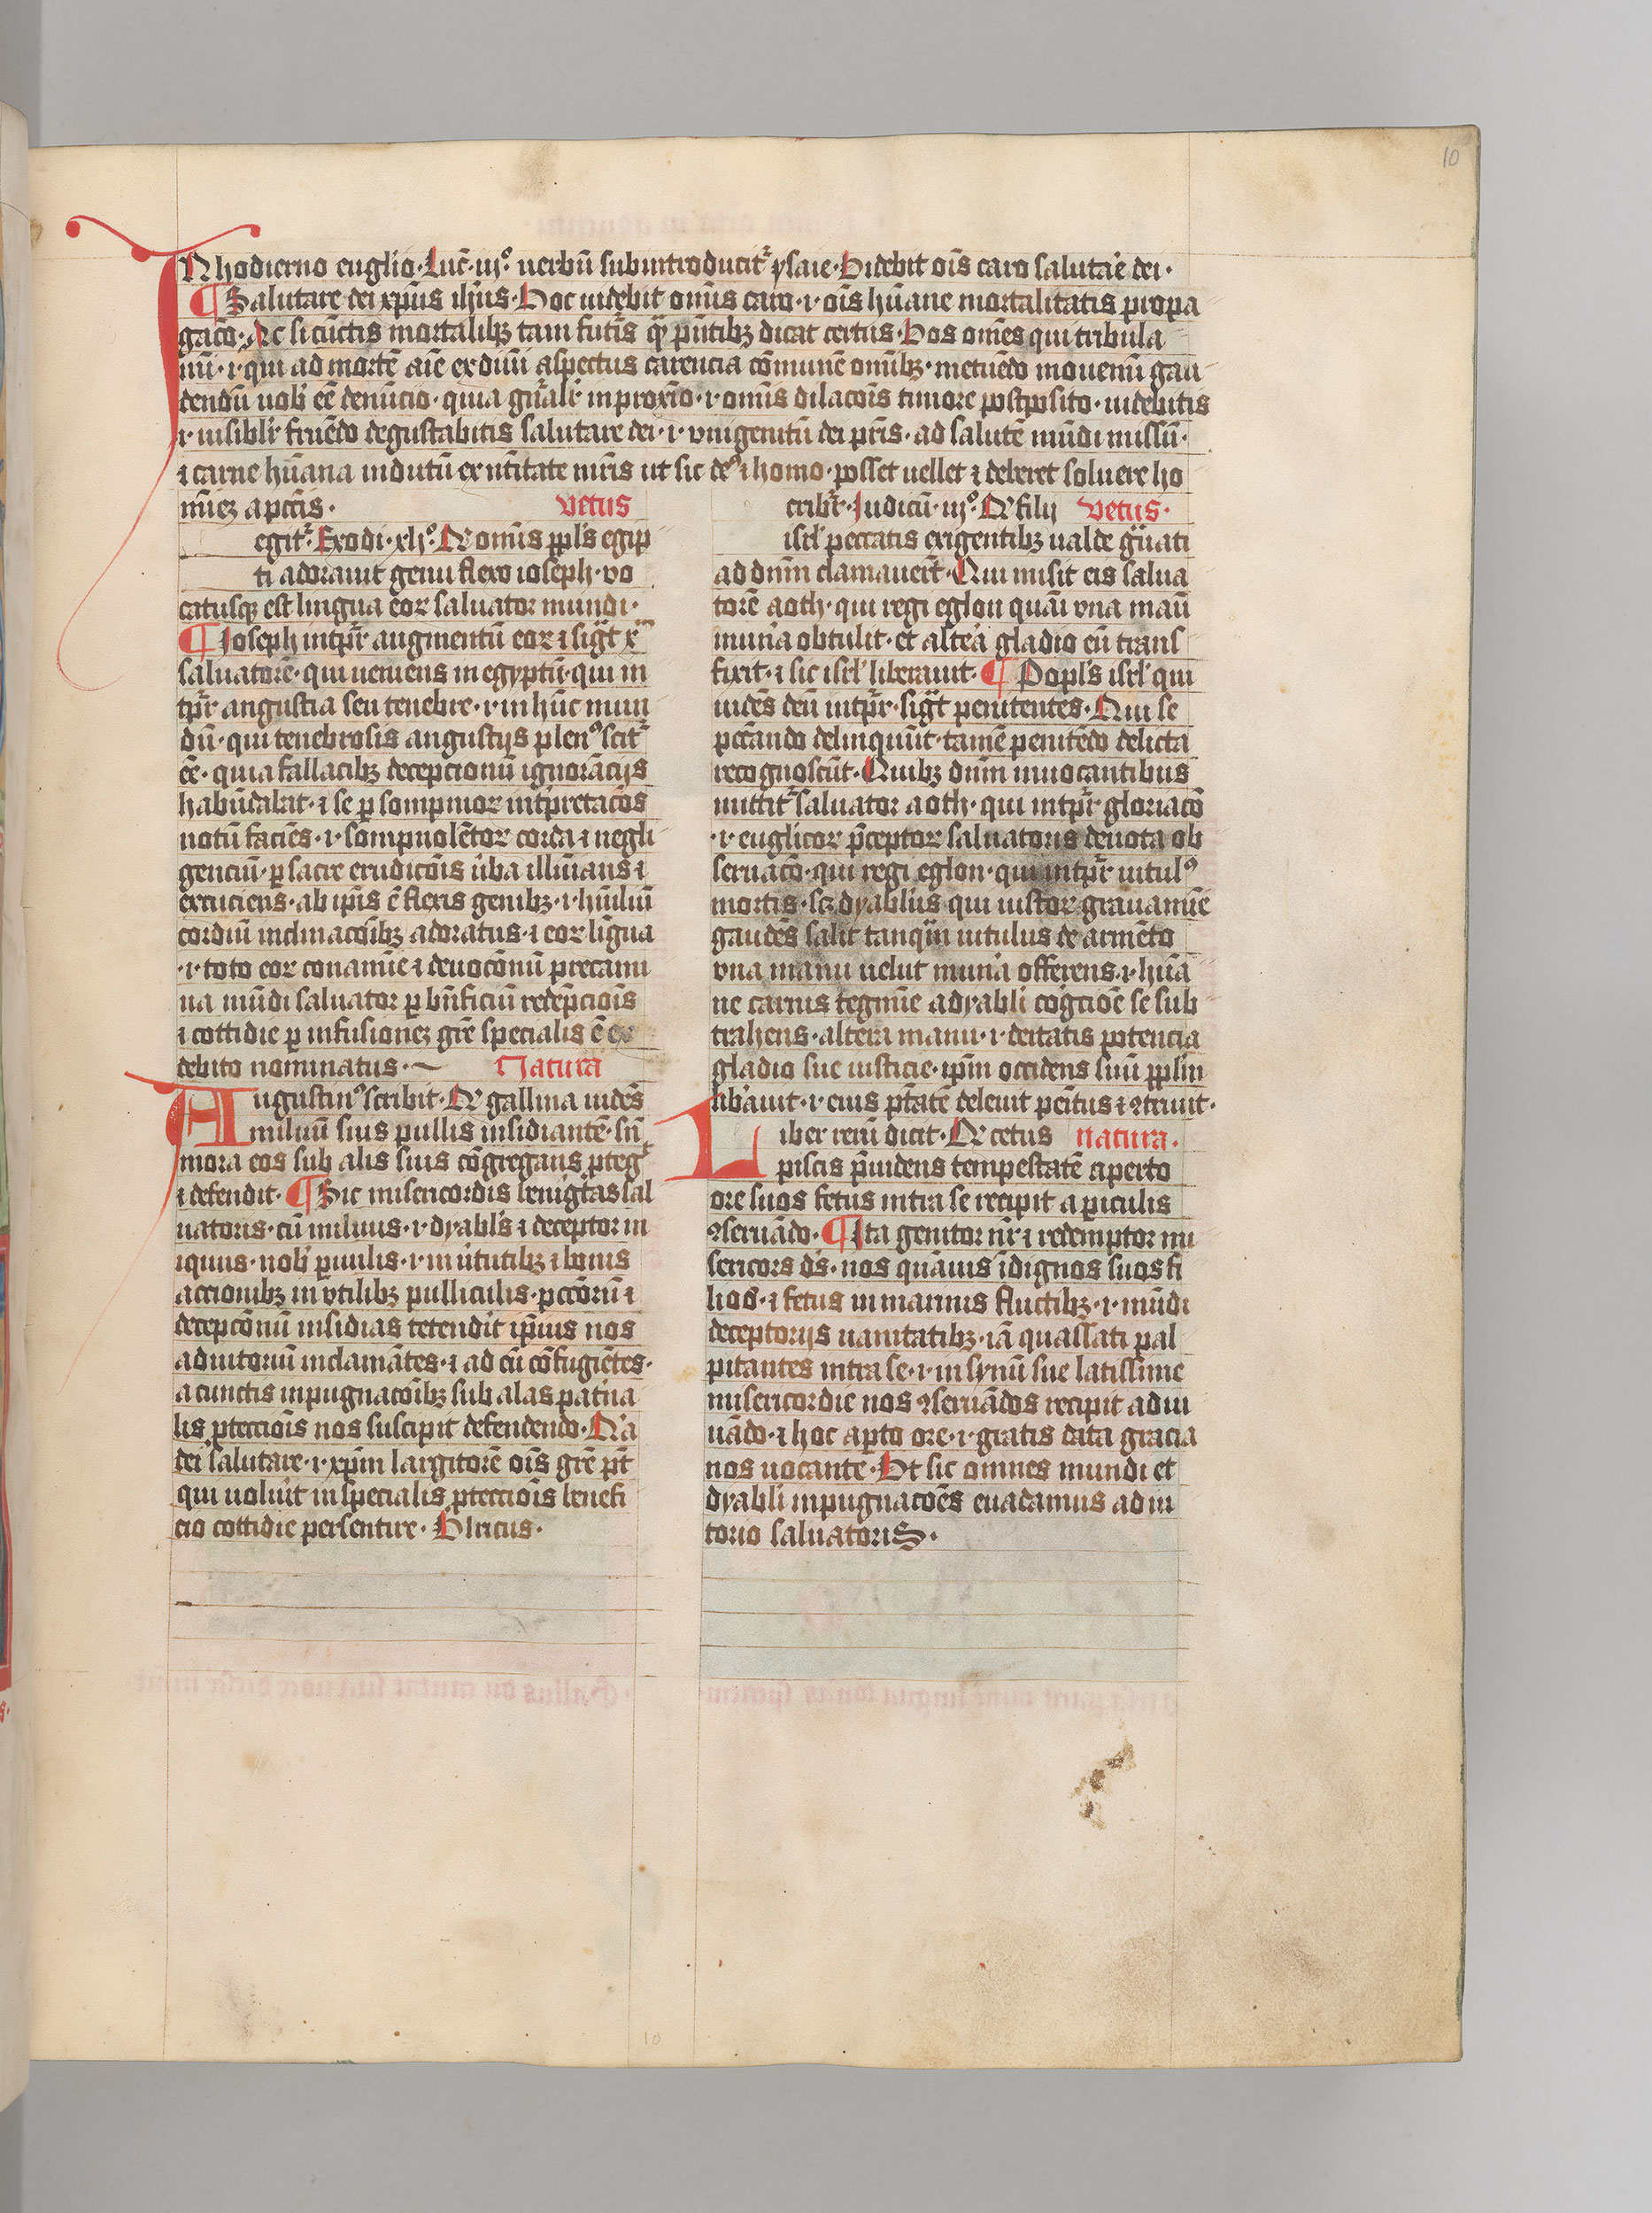 10
IN hodierno euglio · Luc̄ · iijº · uerbū subintroducit᷑ ysaie · Videbit oīs caro salutār̄e dei ·
¶ Salutare dei xp̄us ih̄us · Hoc uidebit omīs caro · i · oīs hūane mortalitatis propa
gac̄o · Ac si cūctis mortalibꝫ tam futīs qꝫ p̄ntibꝫ dicat certus · Vos om̄es qui tribula
mī · i · qui ad mortē aīe ex diuī aspectus carencia cōmunē omībꝫ · metuēdo mouemī gau
dendū uob̄ eē denūcio · quia gn̄alr̄ in prox̄io · i · omīs dilac̄oīs timore postposito · uidebitis
i · uisiblr̄ fruēdo degustabitis salutare dei · i · vnigenitū dei pr̄is · ad salutē mūdi missū ·
ı carne hūana indutū ex ūitate mr̄is ut sic deꝰ ı homo · posset uellet ı deberet soluere ho
mīeꝫ a pcc̄is ·
vetus
egit᷑ · Exodi · xljº · Qꝛ omīs ppl̄s egip
ti adorauit genu flexo ioseph · vo
catusqꝫ est lingua eoꝝ saluator mundi ·
¶ Joseph intpr̄ augmentū eoꝝ ı sigt̄ xm̄
saluatorē · qui ueniens in egyptū · qui in
tpr̄ angustia seu tenebre · i · in hūc mun
dū · qui tenebrosis angustijs plenꝰ scit᷑
eē · quia fallacibꝫ decepcionū ignorācijs
habūdabat · ı se p sompnioꝝ intp̄retac̄oēs
notū faciēs · i · sompnolētoꝝ corda ı negli
genciū · p sacre erudicōis ūba illūians ı
excuciens · ab ip̄is ē flexis genibꝫ · i · hūiliū
cordiū inclinacōibꝫ adoratus · ı eoꝝ ligua
· i · toto eoꝝ conamīe ı deuocōnū precami
na mūdi saluator p bn̄ficiū redēpciois
ı cottidie p infusioneꝫ gr̄e specialis ē ex
debito nominatus ·
Natura
Augustinꝰ scribit · Qꝛ gallina uidēs
miluū suis pullis insidiantē · sn̄
mora eos sub alis suis cōgregans pteg᷑
ı defendit · ¶ Sic misericordis benigt̄as sal
uatoris · cū miluus · i · dyabl̄s ı deceptor in
iquus · nob̄ puulis · i · in ūtutibꝫ ı bonis
accionibꝫ in vtilibꝫ pulliculis · pcc̄orū ı
decepcōnū insidias tetendit ip̄ius nos
adiutoriū inclamātes · ı ad eū cōfugiētes ·
a cunctis inpugnacōibꝫ sub alas patna
lis ptecciois nos suscipit defendendo · Nā
dei salutare · i · xp̄m largitorē oīs gr̄e pt̄
qui uoluīt in specialis ptecciois benefi
cio cottidie persentire · Vlricus ·
cribit᷑ · Judicū · iijº · Qꝛ filij
vetus ·
isrl̄ peccatis exigentibꝫ ualde gūati
ad dnm̄ clamauerūt · Qui misit eis salua
torē aoth · qui regi eglon quādi vna manū
munīa obtulit · et altēa gladio eū trans
fixit · ı sic isrl̄ liberauit · ¶ Popl̄s isrl̄ qui
uidēs deū intpr̄ · sigt̄ penitentes · Qui se
peccando delinquūt · tamē penitēdo delicta
recognoscūt · Quibꝫ dnm̄ inuocantibus
mittit᷑ saluator aoth · qui intpr̄ gloriacō
· i · euglicoꝝ p̄ceptoꝝ saluatoris deuota ob
seruacō · qui regi eglon · qui intpr̄ uitulꝰ
mortis · scꝫ dyablus qui iustoꝝ grauamīe
gaudēs salit tanqm̄ uitulus de armēto
vna manu uelut munīa offerens · i · hūa
ne carnis tegmīe a dyabli cogcioē se sub
trahens · altera manu · i · deitatis potencia
gladio sue iusticie · ip̄m occidens suū pplm̄
libauit · i · eius pt̄atē deleuit penitus ı ꝯtriuit ·
Liber rerū dicit · Qꝛ cetus
natura ·
piscis puidens tempestatē aperto
ore suos fetus intra se recipit a piculis
ꝯseruādo · ¶ Ita genitor nr̄ ı redemptor mi
sericors ds̄ · nos quāuis īdignos suos fi
lios · ı fetus in marinis fluctibꝫ · i · mūdi
deceptorijs uanitatibꝫ · iā quassati pal
pitantes intra se · i · in synū sue latissime
misericordie nos ꝯseruādos recipit adiu
uādo · ı hoc apto ore · i · gratis data gracia
nos uocante · Vt sic omnes mundi et
dyabli inpugnacōes euadamus adiu
torio saluatoris ·
10